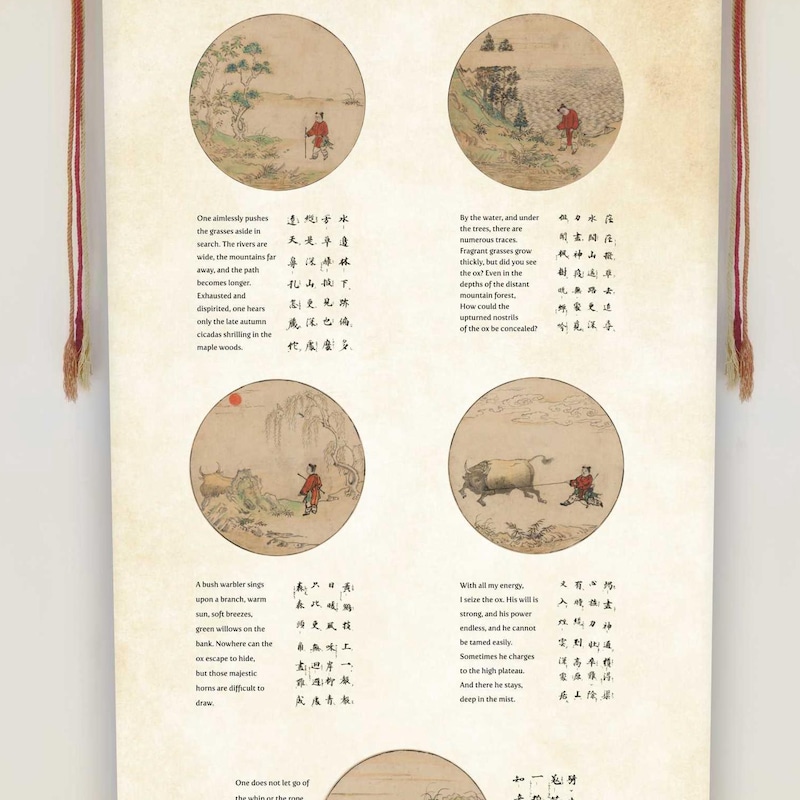 One aimlessly pushes
the grasses aside in
search. The rivers are
wide, the mountains far
away, and the path
becomes longer.
Exhausted and
dispirited, one hears
only the late autumn
cicadas shrilling in the
maple woods.
水邊林下跡偏多
芳草離披見也麼
縱是深山更深處
遼天鼻孔怎藏佗
By the water, and under
the trees, there are
numerous traces.
Fragrant grasses grow
thickly, but did you see
the ox? Even in the
depths of the distant
mountain forest,
How could the
upturned nostrils
of the ox be concealed?
茫茫撥草去追尋
水闊山遙路更深
力盡神疲無處覓
但聞楓樹晚蟬吟
A bush warbler sings
upon a branch, warm
sun, soft breezes,
green willows on the
bank. Nowhere can the
ox escape to hide,
but those majestic
horns are difficult to
draw.
黃鸝枝上一聲聲
日暖風和岸柳青
只此更無迴避處
森森頭角畫難成
With all my energy,
I seize the ox. His will is
strong, and his power
endless, and he cannot
be tamed easily.
Sometimes he charges
to the high plateau.
And there he stays,
deep in the mist.
竭盡神通獲得渠
心強力壯卒難除
有時纔到高原上
又入煙雲深處居
One does not let go of
the whip or the rope